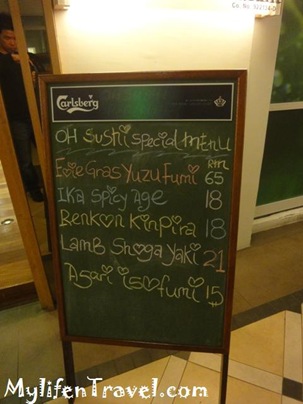 Carlsberg
OH Sushi special menu
RM
Foie Gras Yuzu Fumi 65
Ika Spicy Age 18
Renkon Kinpira 18
Lamb Shoga Yaki 21
Asari isofumi 15
MylifenTravel.com